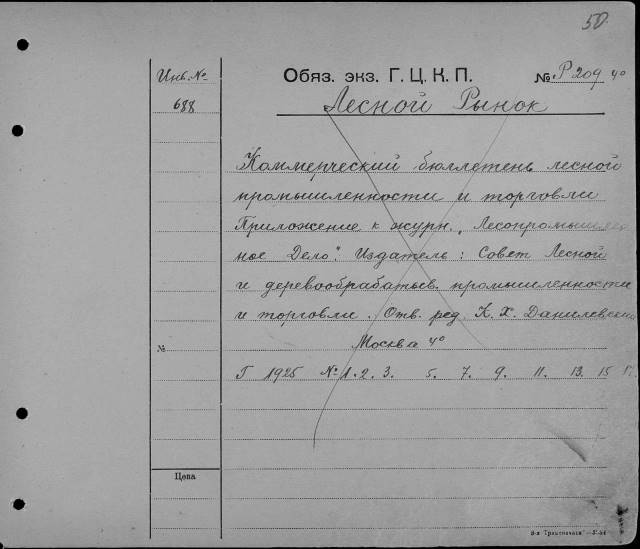 50.
Инв. №
688
Обяз. экз. Г. Ц. К. П. № Р 209 4°
Лесной Рынок
Коммерческий бюллетень лесной
промышленности и торговли
Приложение к журн. „Лесопромышлен
ное Дело". Издатель: Совет Лесной
и деревообрабатыв. промышленности
и торговли. Отв. ред. К. Х. Данилевский
Москва 4°
№
Г 1925 № 1. 2. 3. 5. 7. 9. 11. 13. 15 17
Цена